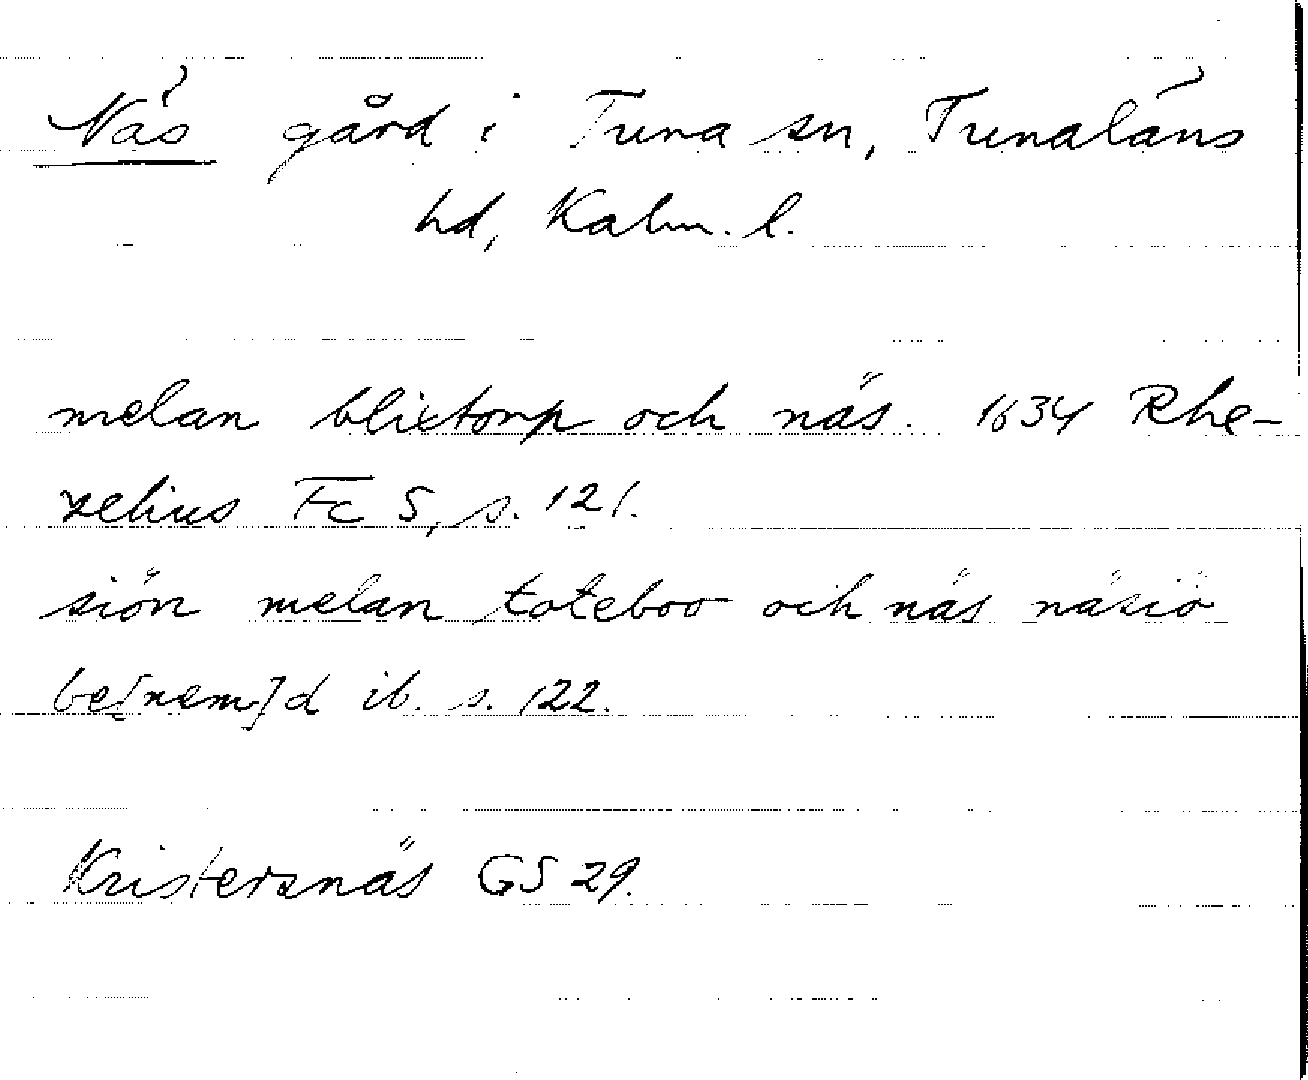 Näs gård i Tuna sn, Tunaläns
hd, Kalm. l.
melan blixtorp och näs. 1634 Rhe-
zelius Fc 5, s. 121.
siön melan toteboo och näs näsiö
be[nem]d ib. s. 122.
Kristersnäs GS 29.